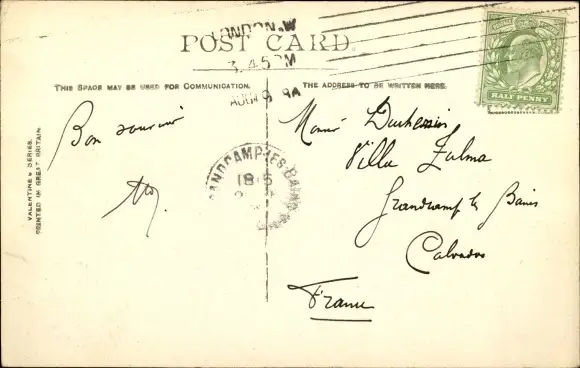 LONDON.W
POST CARD.
3.45PM
THIS SPACE MAY BE USED FOR COMMUNICATION.
THE ADDRESS TO BE WRITTEN HERE.
HALF PENNY
VALENTINE'S SERIES.
PRINTED IN GREAT BRITAIN.
Bon souvenir
GRANDCAMP-LES-BAINS
18
Villa Zulma
Grandcamp les Bains
Calvados
France